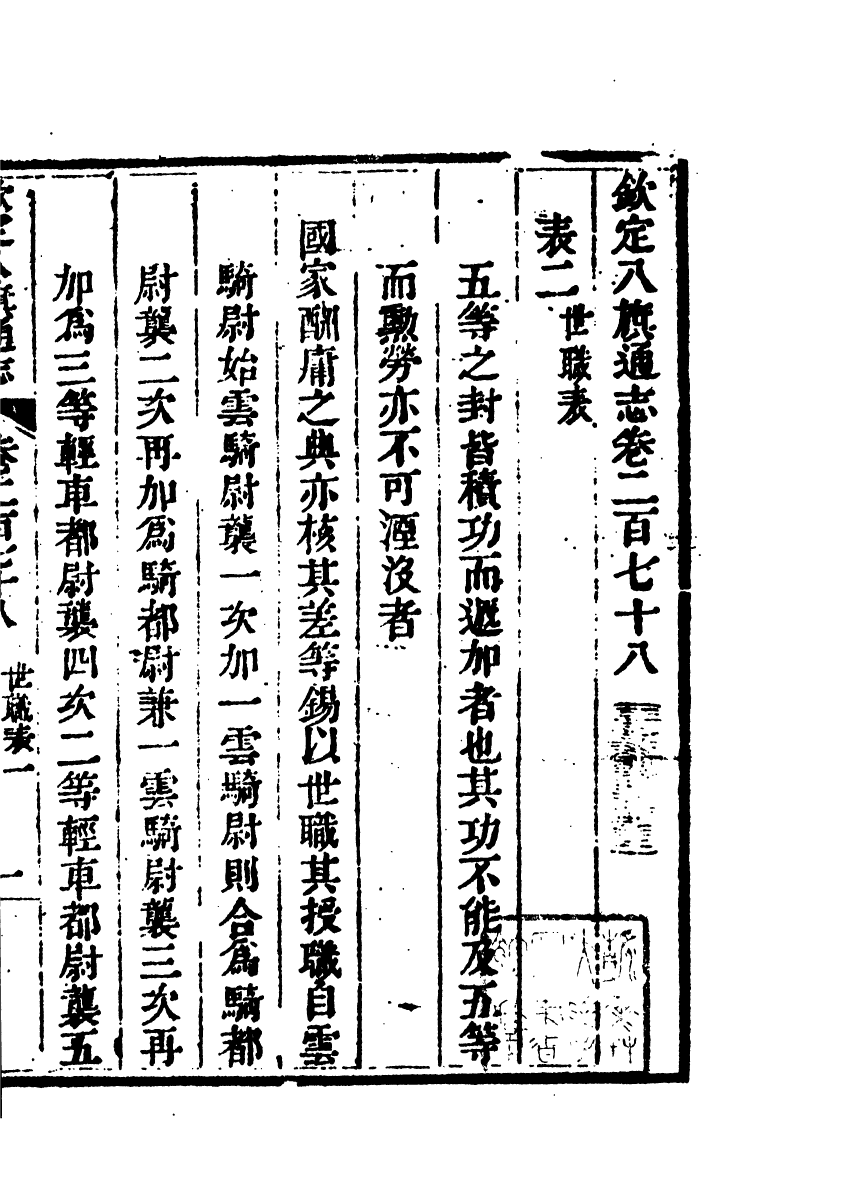 欽定八旗通志卷二百七十八
表二世職表
五等之封皆積功而遞加者也其功不能及五等
而勳勞亦不可湮沒者
國家酬庸之典亦核其差等錫以世職其授職自雲
騎尉始雲騎尉襲一次加一雲騎尉則合爲騎都
尉襲二次再加爲騎都尉兼一雲騎尉襲三次再
加爲三等輕車都尉襲四次二等輕車都尉襲五
欽定八旗通志 卷二百七十八 世職表一 一